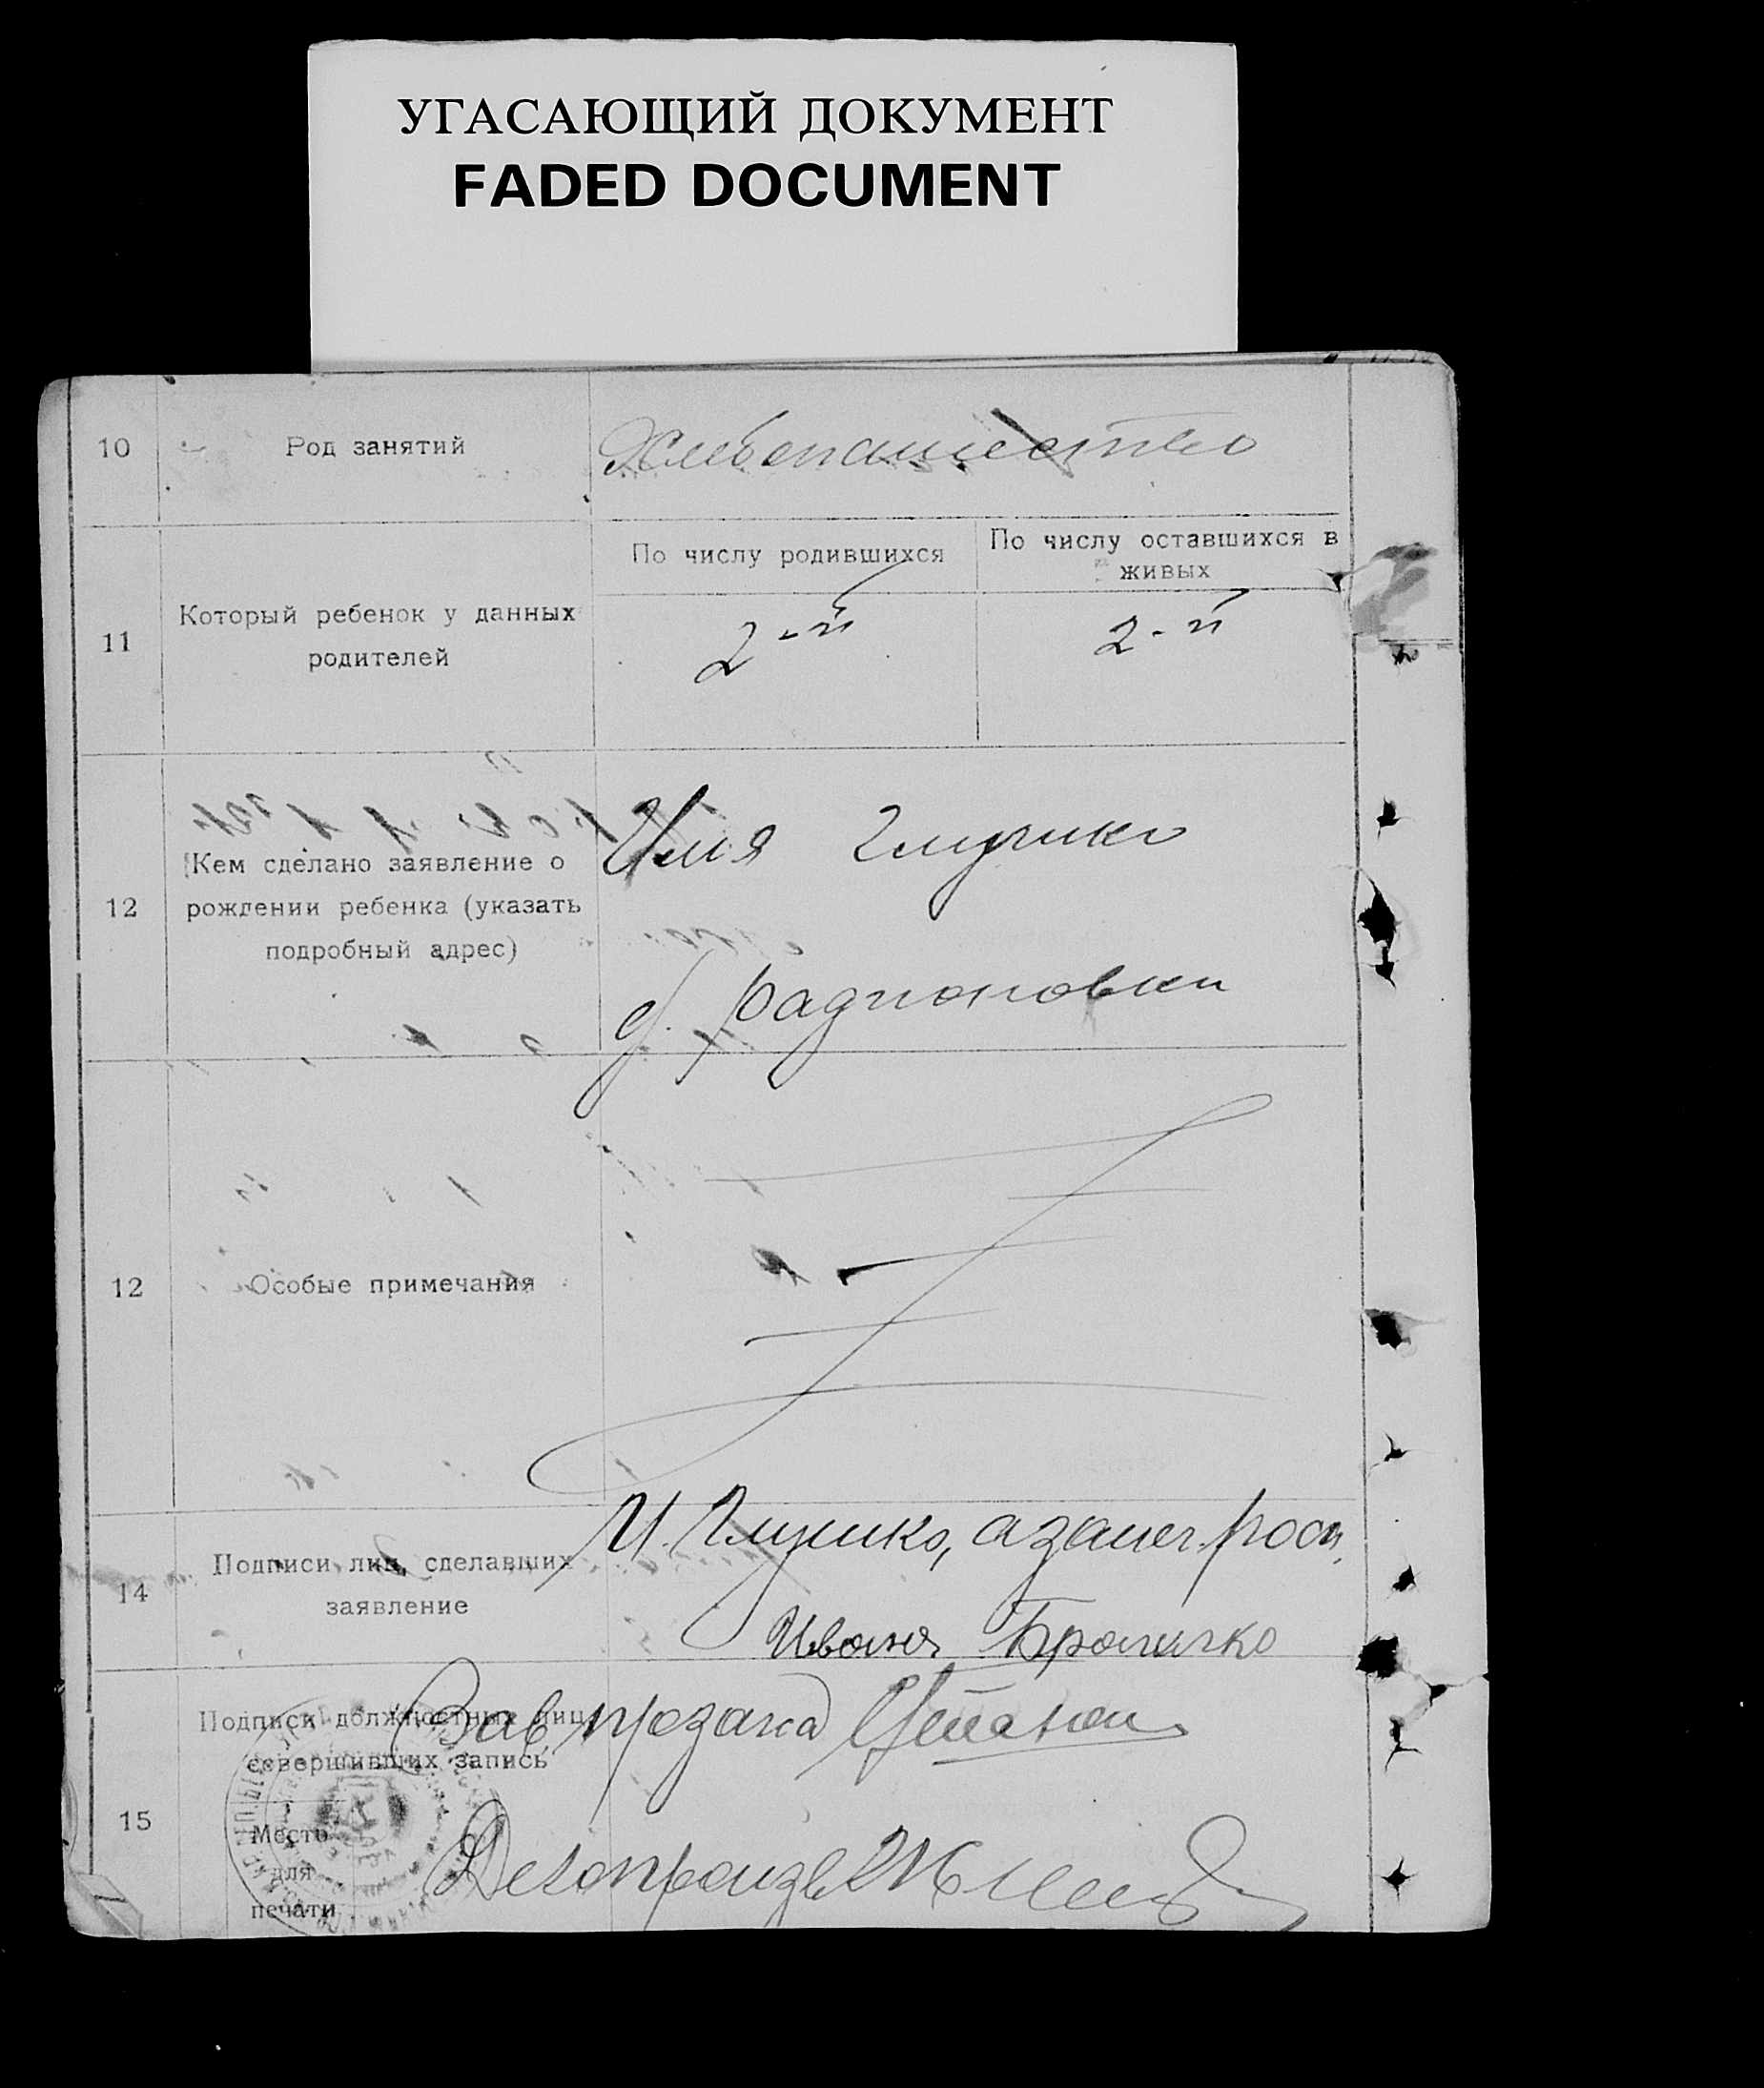 УГАСАЮЩИЙ ДОКУМЕНТ
FADED DOCUMENT
10 Род занятий Хлебопашество
11 Который ребенок у данных родителей
По числу родившихся
По числу оставшихся в живых
2-й
2-й
12
Кем сделано заявление о
рождении ребенка (указать
подробный адрес)
Илия Глушко
д. Радионовки
12 Особые примечания
14
Подписи лиц, сделавших
заявление
И. Глушко, а за негр. росп.
Ивоня
15
Подписи должностных лиц
совершивших запись
Зав,
Делопроизв
Место
для
печати